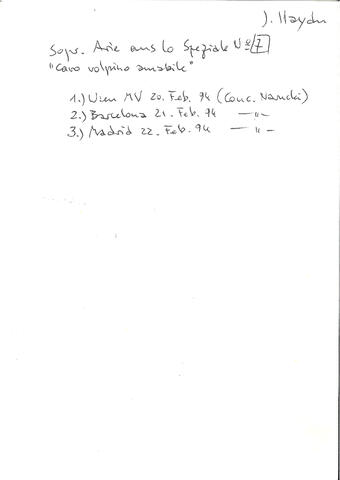 J. Haydn
Sopr. Arie aus lo Speziale No 7
"Caro volpino amabile"
1.) Wien MV 20. Feb. 94 (Conc. Namedá)
2.) Barcelona 21. Feb. 94 — " —
3.) Madrid 22. Feb. 94 — " —